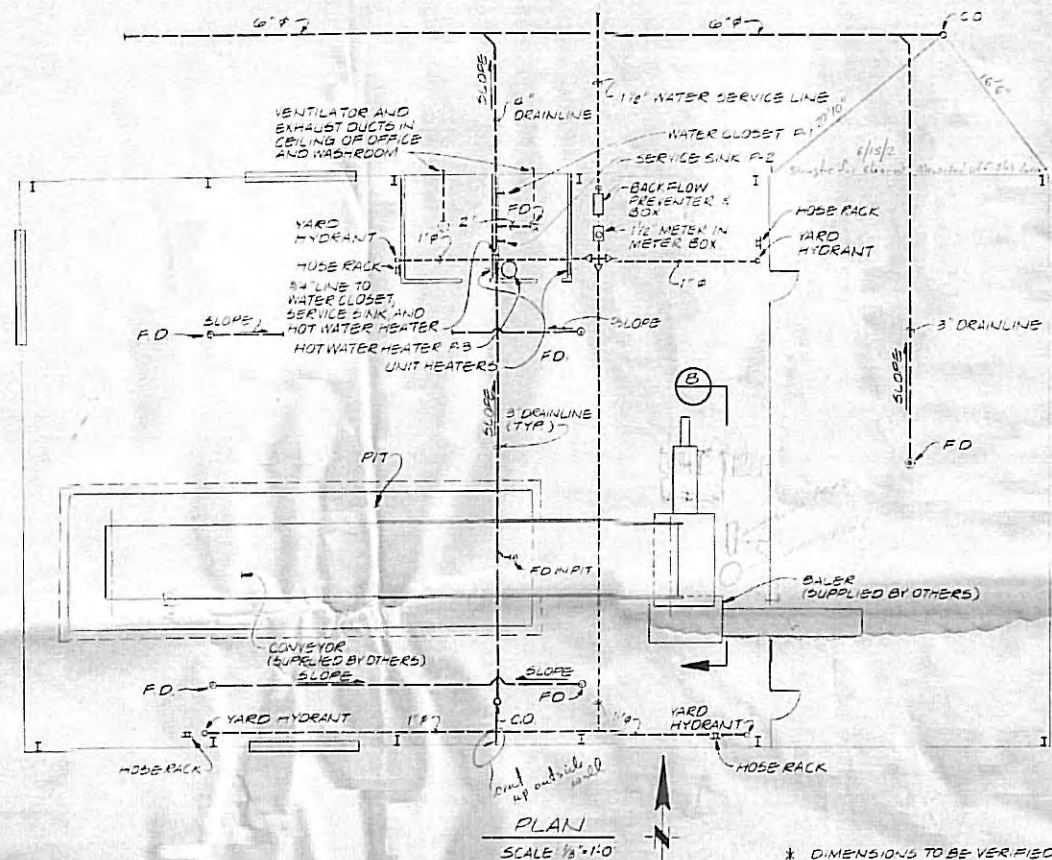 6" ø
6" ø
C.O.
SLOPE
1 1/2" WATER SERVICE LINE
4"
DRAINLINE
VENTILATOR AND
EXHAUST DUCTS IN
CEILING OF OFFICE
AND WASHROOM
WATER CLOSET P-1
27'10"
16'6"
SERVICE SINK P-2
6/15/2
BACKFLOW
PREVENTER &
BOX
2"
F.D.
1 1/2" METER IN
METER BOX
HOSE RACK
YARD
HYDRANT
YARD
HYDRANT
1" ø
HOSE RACK
1" ø
3/4" LINE TO
WATER CLOSET,
SERVICE SINK, AND
HOT WATER HEATER
F.D.
SLOPE
SLOPE
HOT WATER HEATER P-3
F.D.
UNIT HEATERS
3" DRAINLINE
SLOPE
B
SLOPE
3" DRAINLINE
(TYP.)
F.D.
PIT
FD IN PIT
BALER
(SUPPLIED BY OTHERS)
CONVEYOR
(SUPPLIED BY OTHERS)
SLOPE
SLOPE
F.D.
F.D.
YARD HYDRANT
1" ø
C.O.
1" ø
YARD
HYDRANT
HOSE RACK
HOSE RACK
up outside
wall
PLAN
SCALE 1/8"=1'-0"
N
* DIMENSIONS TO BE VERIFIED